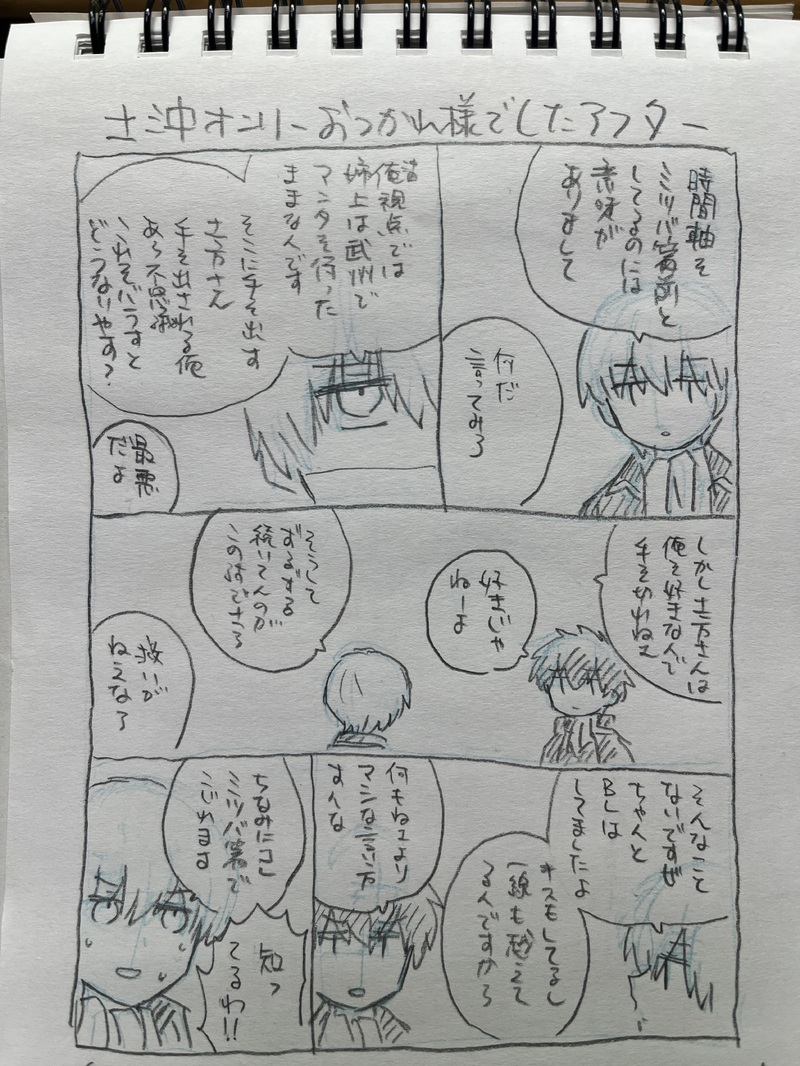 土沖オンリーおつかれ様でしたアフター
時間軸を
ミツバ篇前と
してるのには
意味が
ありまして
何だ
言ってみろ
俺視点では
姉上は武州で
マンタを待った
ままなんです
そこに手を出す
土方さん
手を出される俺
あら不思議
これをバラすと
どうなりやす?
最悪
だよ
しかし土方さんは
俺を好きなんで
手を切れねェ
好きじゃ
ねーよ
そうして
ずるずる
続いてんのが
この
救いが
ねえなァ
そんなこと
ないですぜ
ちゃんと
BLは
してましたよ
キスもしてるし
一線も越えて
るんですから
何もねェより
マシな言い方
すんな
ちなみにコレ
ミツバ篇で
こじれます
知っ
てるわ!!